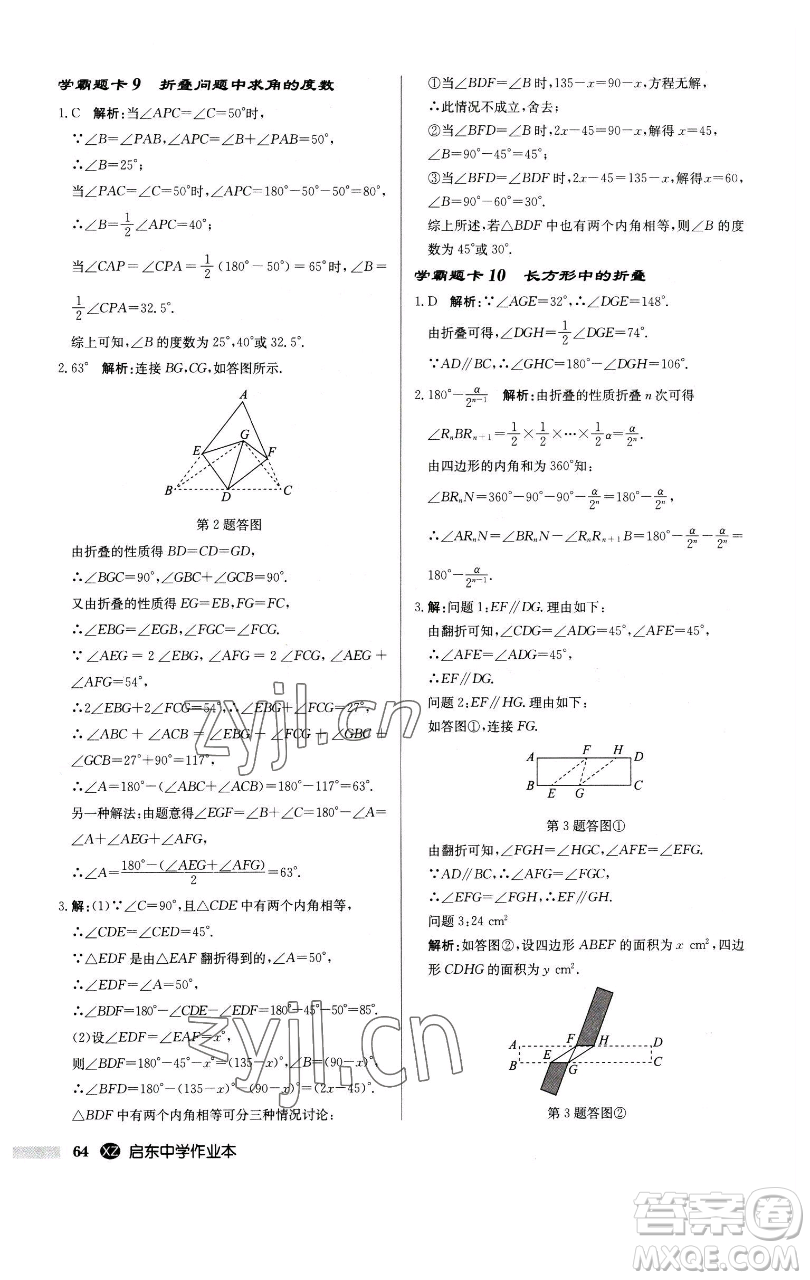 学霸题卡9 折叠问题中求角的度数
1.C 解析:当∠APC=∠C=50°时,
∵∠B=∠PAB,∠APC=∠B+∠PAB=50°,
∴∠B=25°;
当∠PAC=∠C=50°时,∠APC=180°-50°-50°=80°,
∴∠B=1/2∠APC=40°;
当∠CAP=∠CPA=1/2(180°-50°)=65°时,∠B=
1/2∠CPA=32.5°.
综上可知,∠B的度数为25°,40°或32.5°.
2.63° 解析:连接BG,CG,如答图所示.
A
G
E
F
B
D
C
第2题答图
由折叠的性质得BD=CD=GD,
∴∠BGC=90°,∠GBC+∠GCB=90°.
又由折叠的性质得EG=EB,GF=CF,
∴∠EBG=∠EGB,∠FGC=∠FCG.
∵∠AEG=2∠EBG,∠AFG=2∠FCG,∠AEG+
∠AFG=54°,
∴2∠EBG+2∠FCG=54°,∴∠EBG+∠FCG=27°,
∴∠ABC+∠ACB=∠EBG+∠FCG+∠GBC+
∠GCB=27°+90°=117°,
∴∠A=180°-(∠ABC+∠ACB)=180°-117°=63°.
另一种解法:由题意得∠EGF=∠B+∠C=180°-∠A=
∠A+∠AEG+∠AFG,
∴∠A=(180°-(∠AEG+∠AFG))/2=63°.
3.解:(1)∵∠C=90°,且△CDE中有两个内角相等,
∴∠CDE=45°.
∵△EDF是由△EAF翻折得到的,∠A=50°,
∴∠EDF=∠A=50°,
∴∠BDF=180°-∠CDE-∠EDF=180°-45°-50°=85°.
(2)设∠EDF=∠EAF=x°,
则∠BDF=180°-45°-x°=(135-x)°,∠B=(90-x)°,
∴∠BFD=180°-(135-x)°-(90-x)°=(2x-45)°.
△BDF中有两个内角相等可分三种情况讨论:
①当∠BDF=∠B时,135-x=90-x,方程无解,
∴此情况不成立,舍去;
②当∠BFD=∠B时,2x-45=90-x,解得x=45,
∠B=90°-45°=45°;
③当∠BFD=∠BDF时,2x-45=135-x,解得x=60,
∠B=90°-60°=30°.
综上所述,若△BDF中也有两个内角相等,则∠B的度
数为45°或30°.
学霸题卡10 长方形中的折叠
1.D 解析:∵∠AGE=32°,∴∠DGE=148°.
由折叠可得,∠DGH=1/2∠DGE=74°.
∵AD∥BC,∴∠GHC=180°-∠DGH=106°.
2.180°-α/2ⁿ⁻¹ 解析:由折叠的性质折叠n次可得
∠RₙBRₙ₊₁=1/2×1/2×…×1/2α=α/2ⁿ.
由四边形的内角和为360°知:
∠BRₙN=360°-90°-90°-α/2ⁿ=180°-α/2ⁿ,
∴∠ARₙN=∠BRₙN-∠RₙRₙ₊₁B=180°-α/2ⁿ-α/2ⁿ=
180°-α/2ⁿ⁻¹.
3.解:问题1:EF∥DG.理由如下:
由翻折可知,∠CDG=∠ADG=45°,∠AFE=45°,
∴∠AFE=∠ADG=45°,
∴EF∥DG.
问题2:EF∥HG.理由如下:
如答图①,连接FG.
A F H D
B E G C
第3题答图①
由翻折可知,∠FGH=∠HGC,∠AFE=∠EFG.
∵AD∥BC,∴∠AFG=∠FGC,
∴∠EFG=∠FGH,∴EF∥GH.
问题3:24 cm²
解析:如答图②,设四边形ABEF的面积为x cm²,四边
形CDHG的面积为y cm².
A F H D
B E G C
第3题答图②
64 XZ 启东中学作业本
zyjl.cn
zyjl.cn
答案圈
MXQE.COM